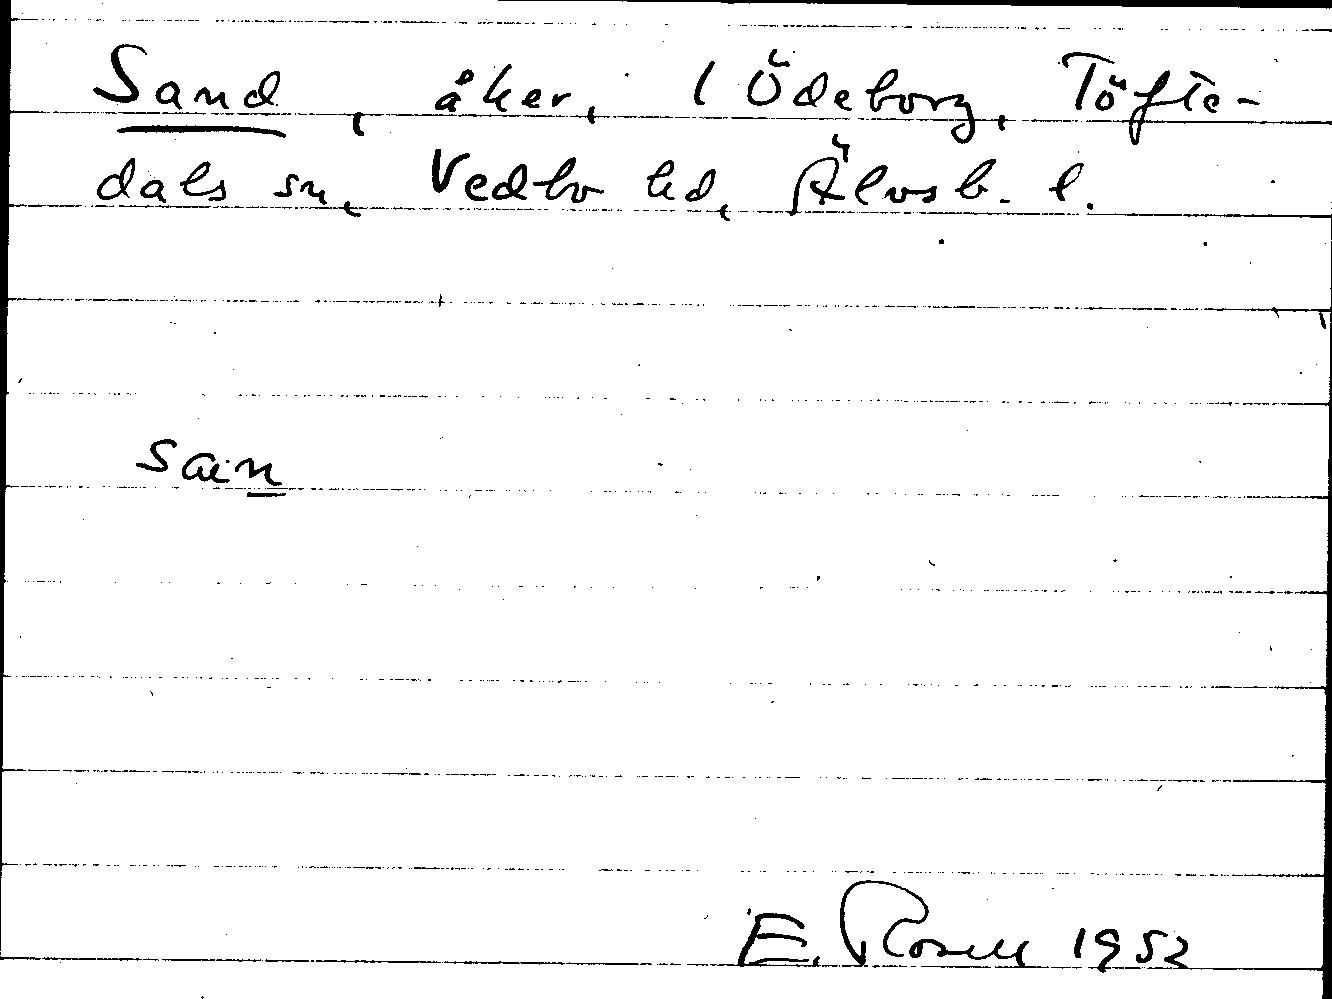 Sand, åker, 1 Ödeborg, Töfte-
dals sn, Vedbo hd, Älvsb. l.
san
E. Rosell 1952